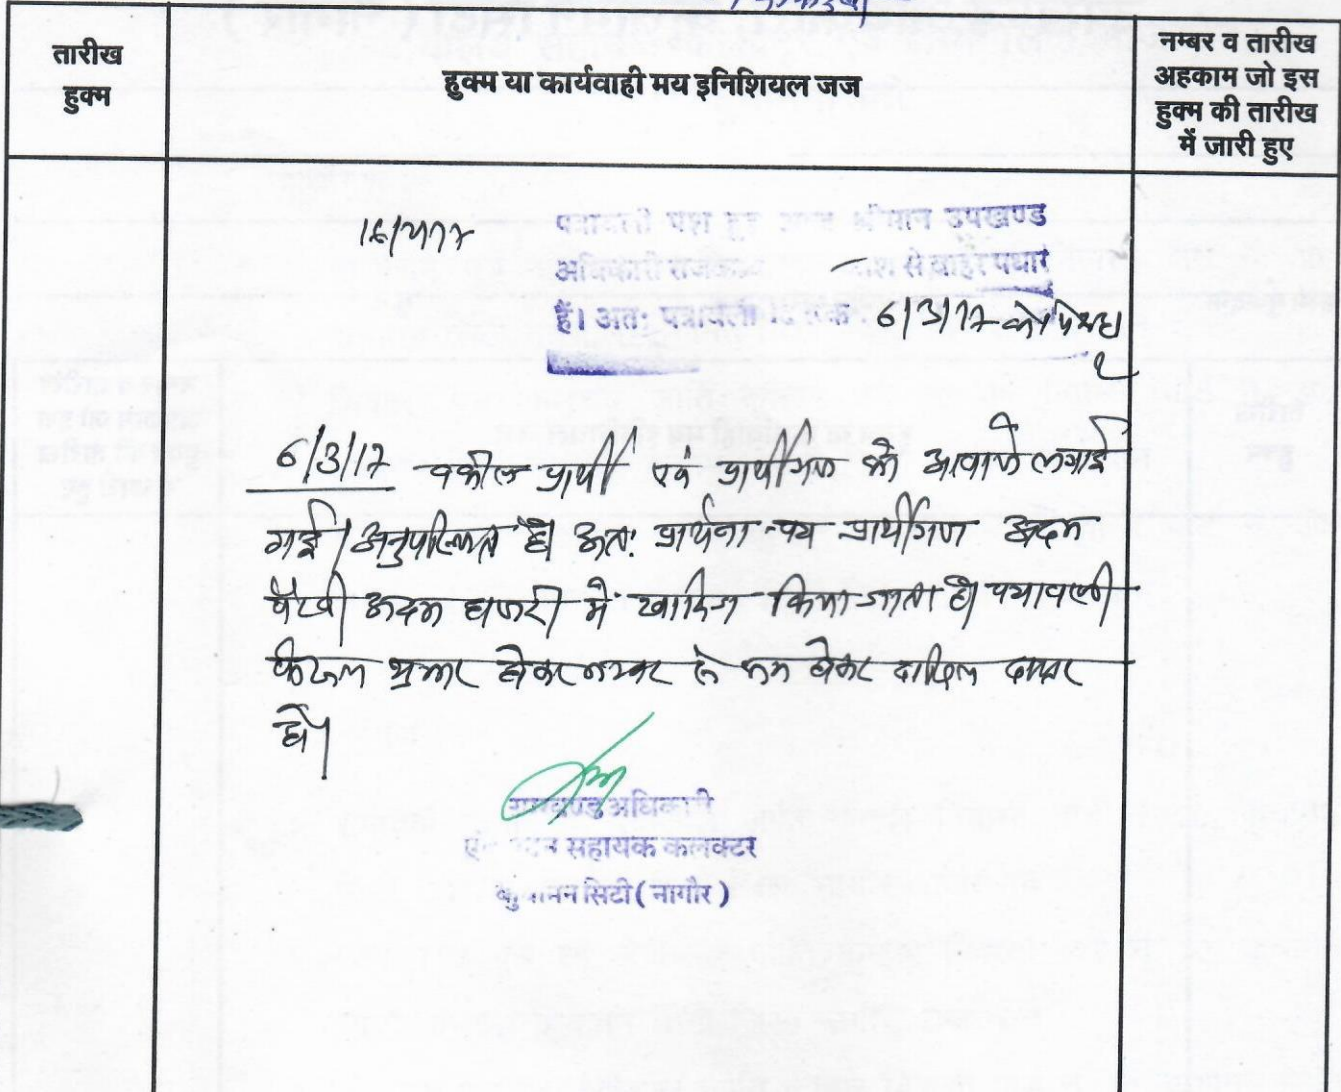 तारीख
हुक्म
हुक्म या कार्यवाही मय इनिशियल जज
नम्बर व तारीख
अहकाम जो इस
हुक्म की तारीख
में जारी हुए
पत्रावली पेश हुई श्रीमान उपखण्ड
अधिकारी से बाहर पधारे
हैं। अतः पत्रावली दिनांक 6/3/17 को पेश हो
6/3/17 वकील प्रार्थी एवं प्रार्थीगण को आवाजे लगाई
गई। अनुपस्थित है। अतः प्रार्थना पत्र प्रार्थीगण अदम
पैरवी अदम हाजरी में खारिज किया जाता है। पत्रावली
फैसल शुमार होकर नम्बर से कम होकर दाखिल दफ्तर
हो।
उपखण्ड अधिकारी
एवं पदेन सहायक कलक्टर
कुचामन सिटी ( नागौर )